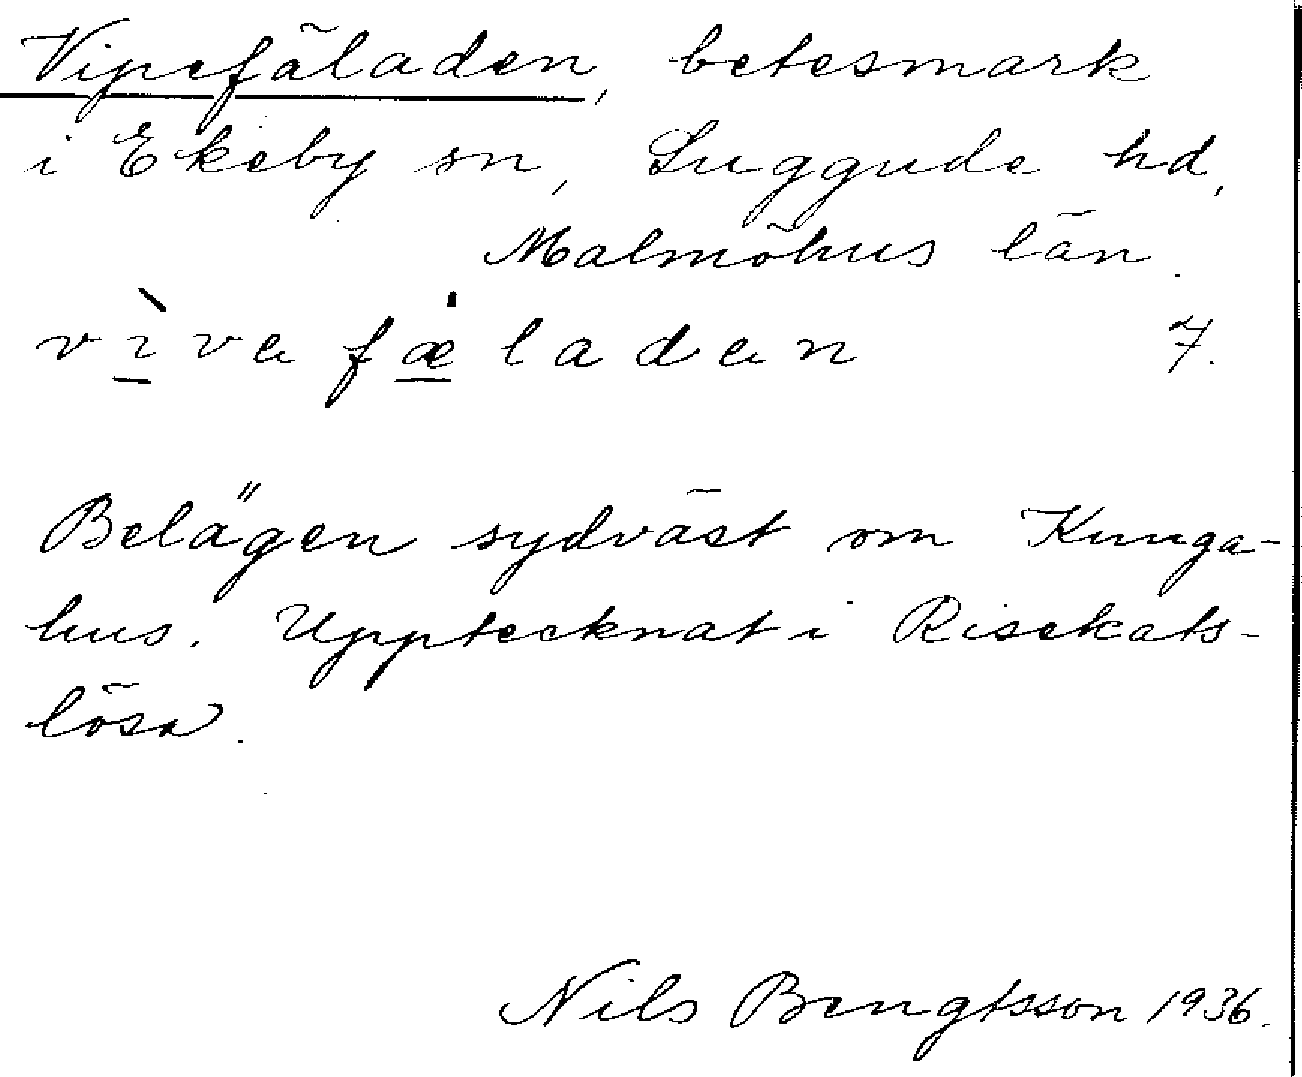 Vipefäladen, betesmark
i Ekeby sn, Luggude hd,
Malmöhus län.
vìvefæladen 7.
Belägen sydväst om Kunga-
hus. Upptecknat i Risekats-
lösa.
Nils Bengtsson 1936.